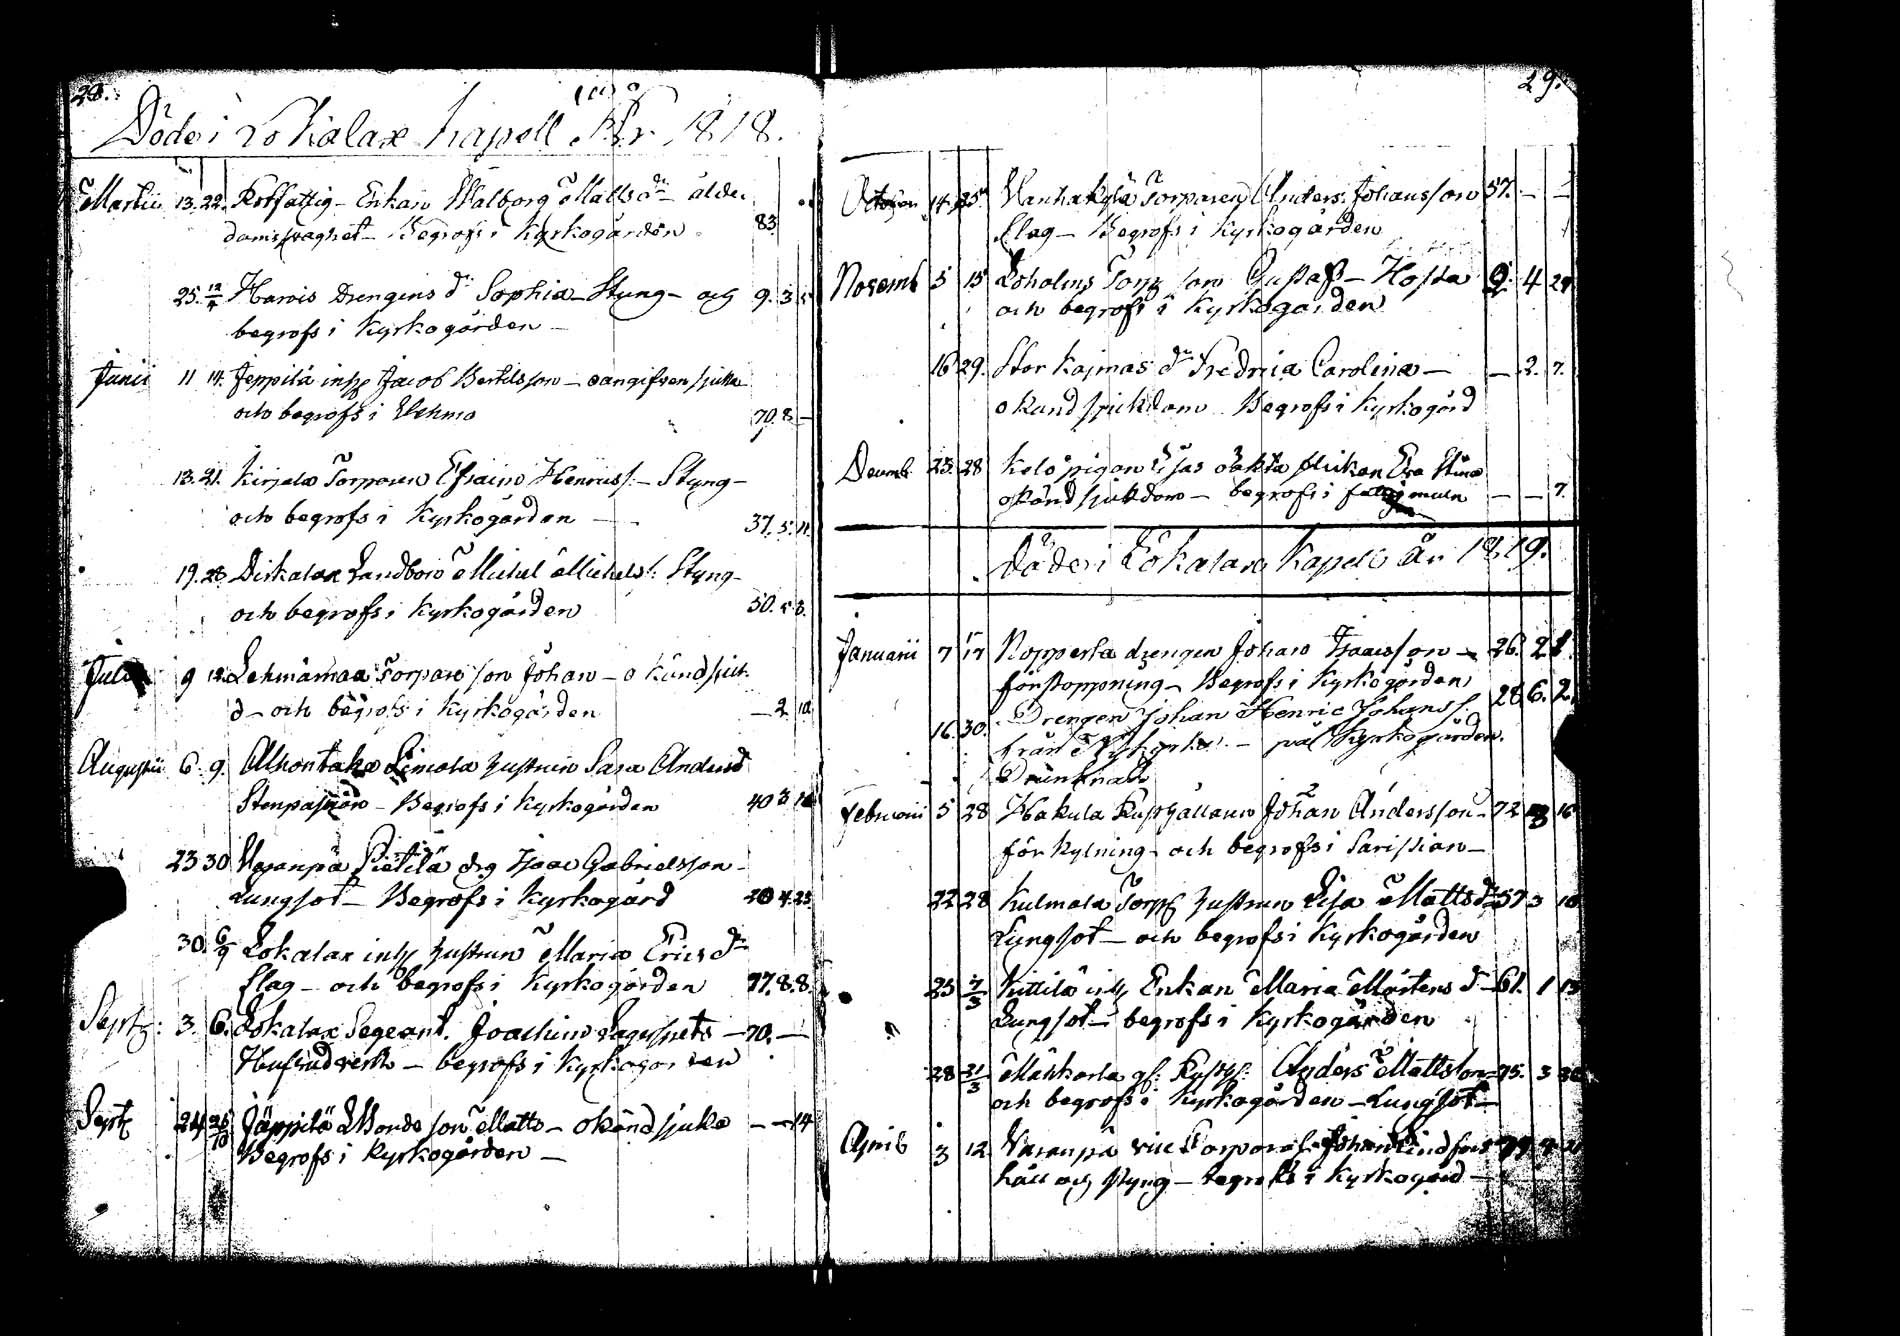 28.
Döde i Lokalax Kapell År 1818.
Martii 13. 22. Rotfattig Enkan Walborg Matts dr ålder
domsvaghet – Begrofs i Kyrkogården 83
25. 12/4 Harvis Drengens dr Sophia – Styng – och 9. 3
begrofs i Kyrkogården –
Junii 11 14. Jeppilä inh Jacob Bertilsson – oangifven sjuka
och begrofs i Lehmo 70. 8 –
13. 21. Kirjala Torparen Efraim Henrics. – Styng –
och begrofs i Kyrkogården 37. 5. 11.
19. 28 Landbon Michel Michels. Styng –
och begrofs i Kyrkogården 50. 5 8.
Julii 9 12. Lehmämaa Torpare son Johan – okänd sjuk
d – och begrofs i Kyrkogården – 2
Augustii 6. 9. Alhontaka hustrun Sara Anders d
Stenpassion – Begrofs i Kyrkogården 40 3
23 30 Varanpä Pietilä drg Isaac Gabrielsson –
Lungsot – Begrofs i Kyrkogård 20 4. 23
30. 6/9 Lokalax inh hustrun Maria Erics dr
Slag – och begrofs i Kyrkogården 77. 8. 8.
Septr: 3. 6. Lokalax Segeant. Joachim Lagerspets – 70. –
Hufvudverk – begrofs i Kyrkogården
Septr 24 Jäppilä Bonde son Matts – okänd sjuka – – 14
Begrofs i Kyrkogården –
29.
October 14. 25. Vanhakylä Torparen Anders Johansson 57. – –
Slag – Begrofs i Kyrkogården
Novemb 5 15 Loholms Torp son Gustaf – Hosta 9. 4 29
och begrofs i Kyrkogården
16 29. Stor Kajmas dr Fredrica Carolina – – 2. 7.
okand sjukdom Begrofs i Kyrkogård
Decemb. 23. 28 Kelo pigan Lisas oäkta flickan Eva Stina
okänd sjukdom – begrofs i – – 7.
Döde i Lokalax Kapell År 1819.
Januarii 7 17 Nopperla drengen Johan Isaacsson – 26. 2
förstoppning – Begrofs i Kyrkogården
16. 30. Drengen Johan Henric Johanss. 28 6. 2.
från Nykyrka – på Kyrkogården.
Drunknade
Februarii 5 28 Hakula Rusthållaren Johan Andersson – 72 8 16
förkylning – och begrofs i
22 28 Kulmala Torp hustrun Lisa Matts dr 57 3 10
Lungsot – och begrofs i Kyrkogården
25 7/3 Kittilä inh Enkan Maria Mårtens d – 61. 1 13
Lungsot – begrofs i Kyrkogården
28 21/3 gf: Rusth. Anders Mattsson – 75. 3
och begrofs i Kyrkogården – Lungsot –
April 3 12. Varanpä vice Corporal Johan Lindfors
håll och styng – begrofs i Kyrkogård –